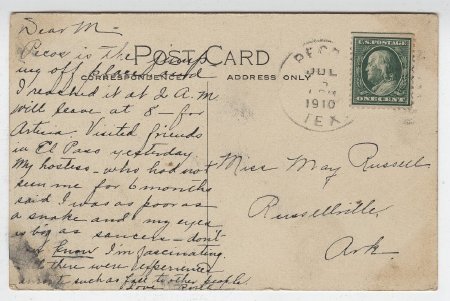 Dear M—
Pecos is the jump
ing off place and
I reached it at 2 A.M
will leave at 8— for
Artesia. Visited friends
in El Paso yesterday
My hostess— who had not
seen me for 6 months
said I was as poor as
a snake and my eyes
big as saucers— don't
know I'm fascinating.
there were experienced
such as fact to other people
Love
POST CARD
CORRESPONDENCE
ADDRESS ONLY
PECOS
JUL
1910
TEX
U.S. POSTAGE
ONE CENT
Miss May Russell
Russellville,
Ark.